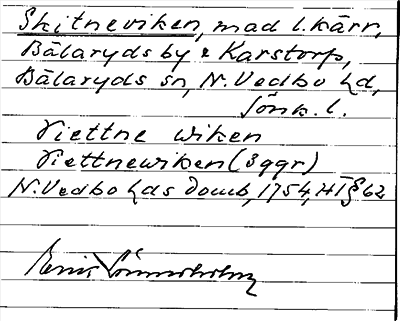 Skitneviken, mad l. kärr,
Bälaryds by & Karstorp,
Bälaryds sn, N. Vedbo hd,
Jönk. l.
Skettne wiken
Skettnewiken (3 ggr)
N. Vedbo hds domb, 1754, HI § 62